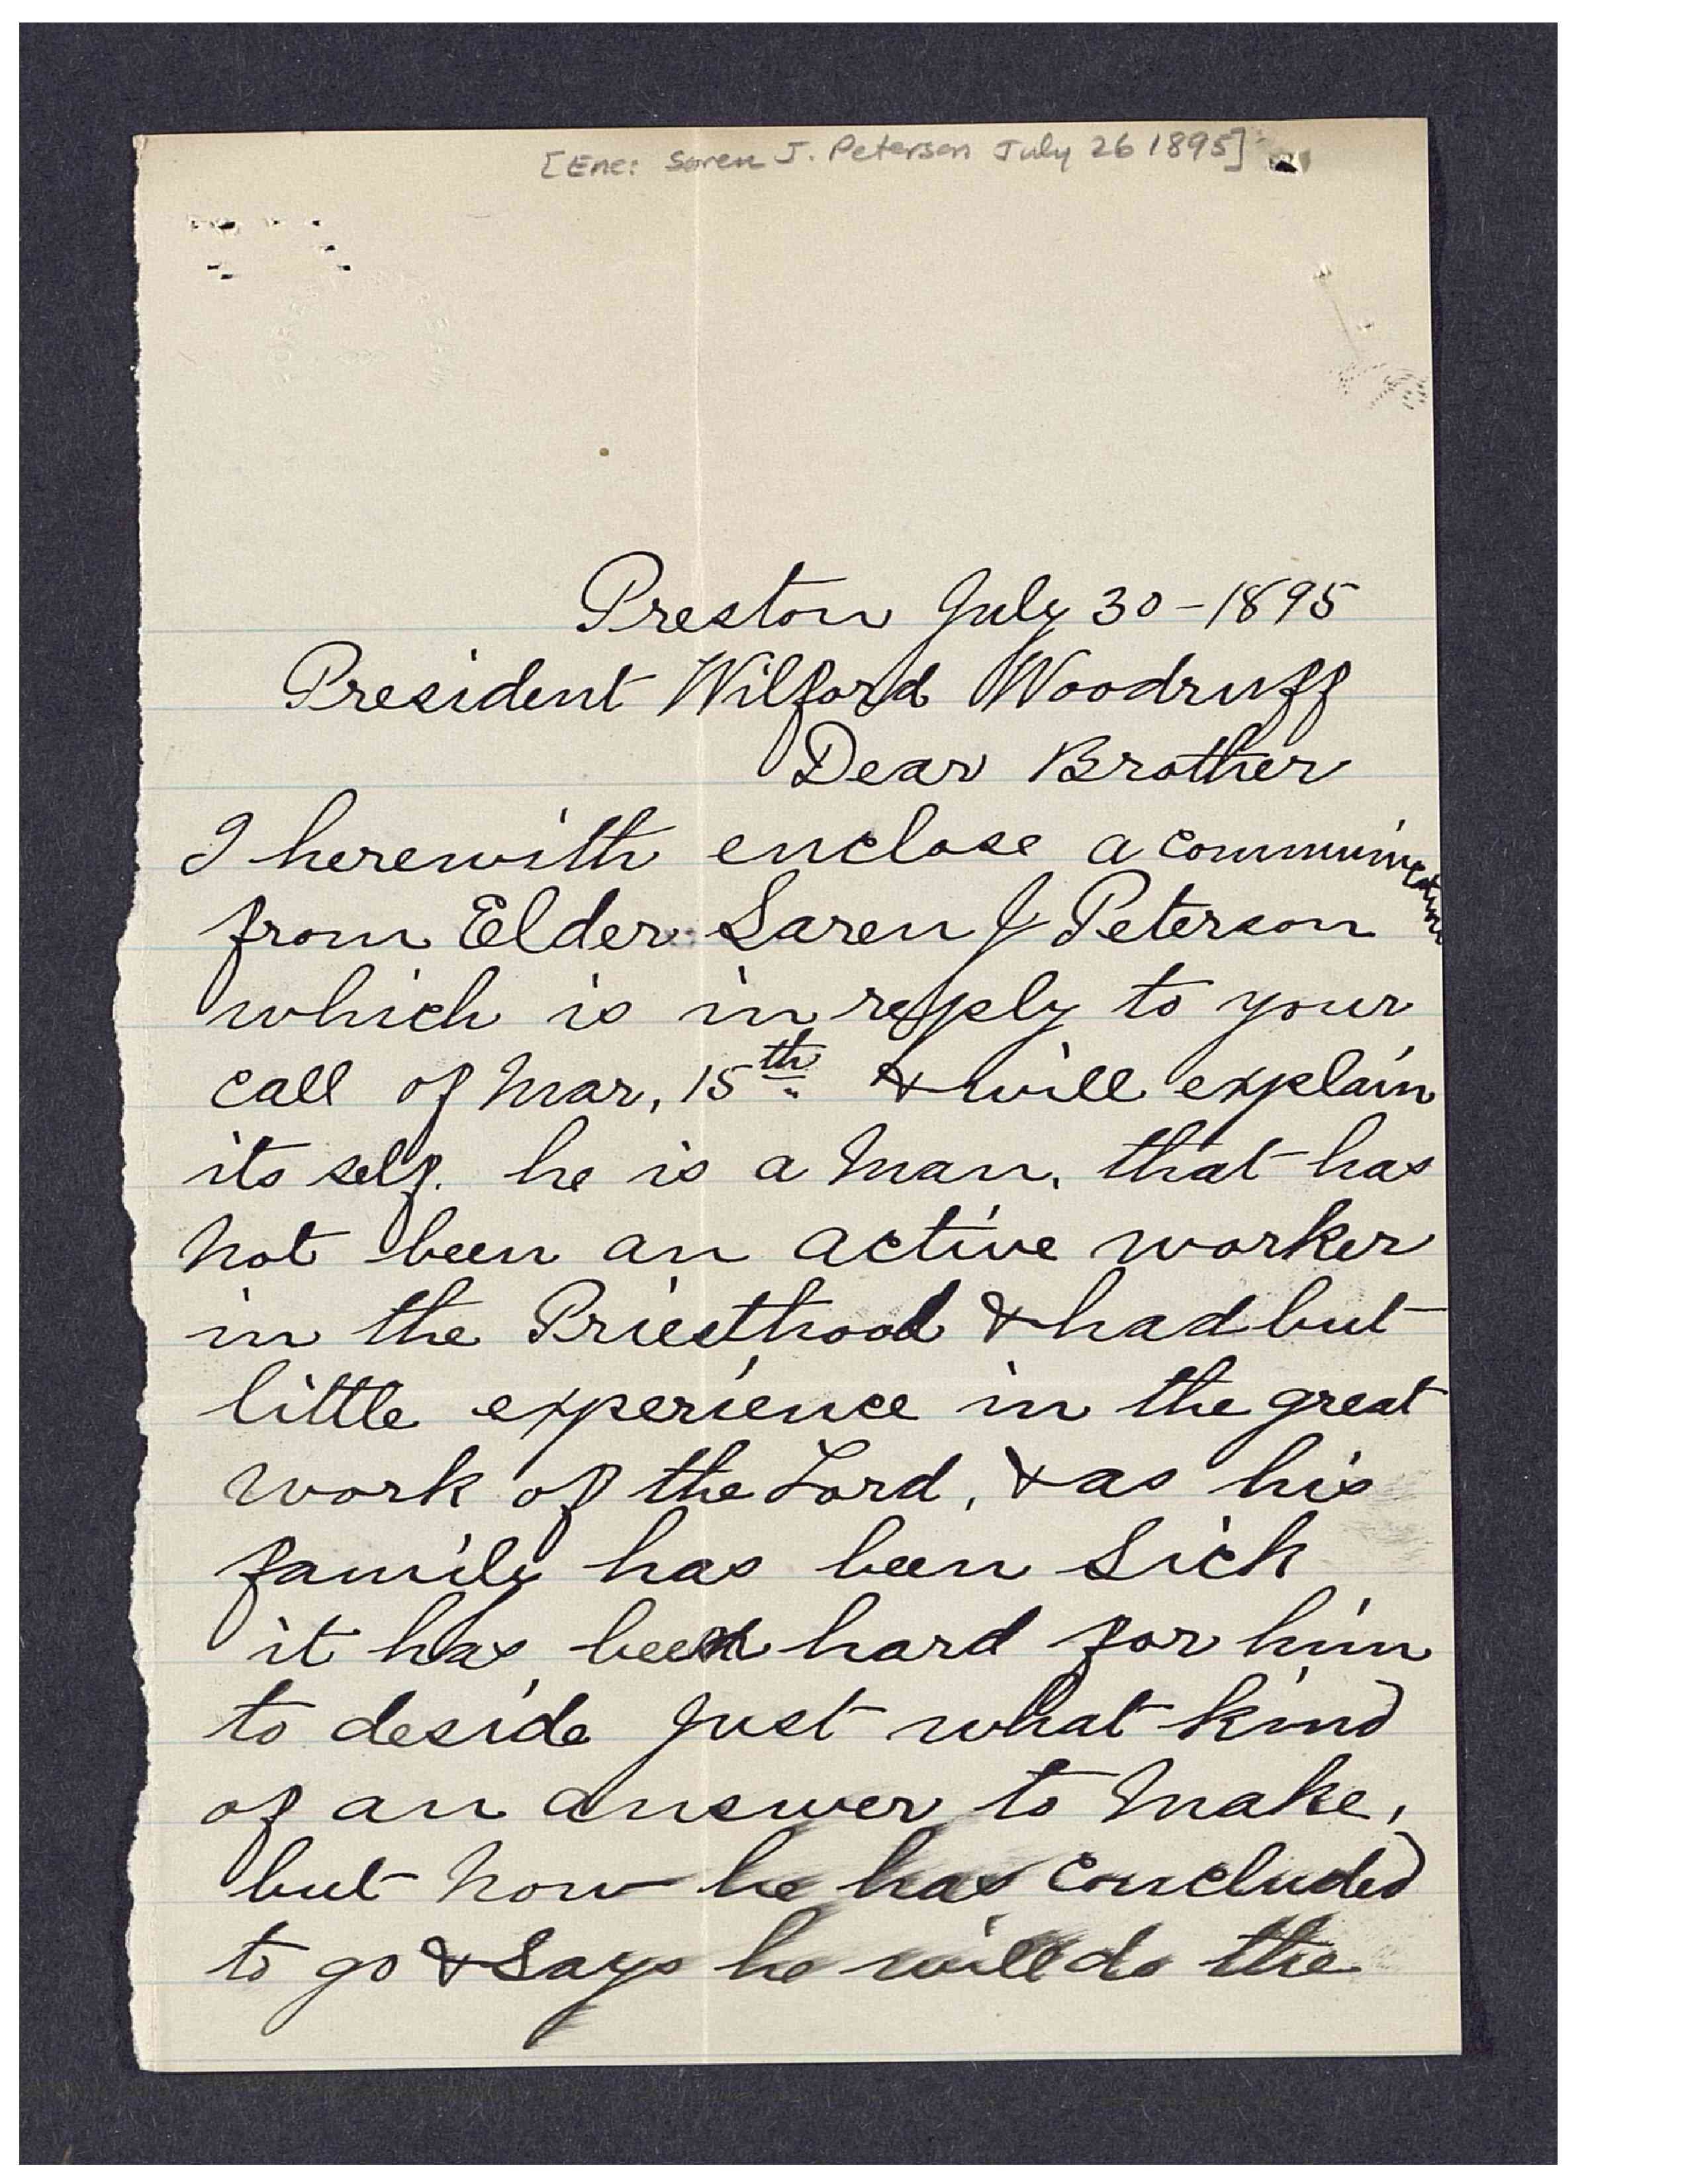 [Enc: Soren J. Peterson July 26 1895]
Preston July 30-1895
President Wilford Woodruff
Dear Brother
I herewith enclose a communication
from Elder Soren J Peterson
which is in reply to your
call of Mar, 15th & will explain
its self. he is a Man, that has
Not been an active worker
in the Priesthood & had but
little experience in the great
work of the Lord, & as his
family has been Sick
it has been hard for him
to deside Just what kind
of an answer to Make,
but Now he has concluded
to go & Says he will do the